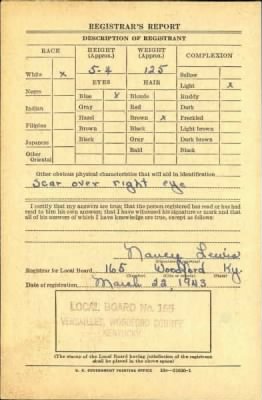 REGISTRAR'S REPORT
DESCRIPTION OF REGISTRANT
RACE HEIGHT (Approx.) WEIGHT (Approx.) COMPLEXION
White x 5-4 125 Sallow
EYES HAIR Light x
Negro Blue x Blonde Ruddy
Indian Gray Red Dark
Hazel Brown x Freckled
Filipino Brown Black Light brown
Japanese Black Gray Dark brown
Other Oriental Bald Black
Other obvious physical characteristics that will aid in identification
Scar over right eye
I certify that my answers are true; that the person registered has read or has had
read to him his own answers; that I have witnessed his signature or mark and that
all of his answers of which I have knowledge are true, except as follows:
Nancy Lewis
Registrar for Local Board 165 Woodford Ky.
Date of registration March 22, 1943
LOCAL BOARD No. 165
VERSAILLES, WOODFORD COUNTY
KENTUCKY
(The stamp of the Local Board having jurisdiction of the registrant
shall be placed in the above space)
U. S. GOVERNMENT PRINTING OFFICE